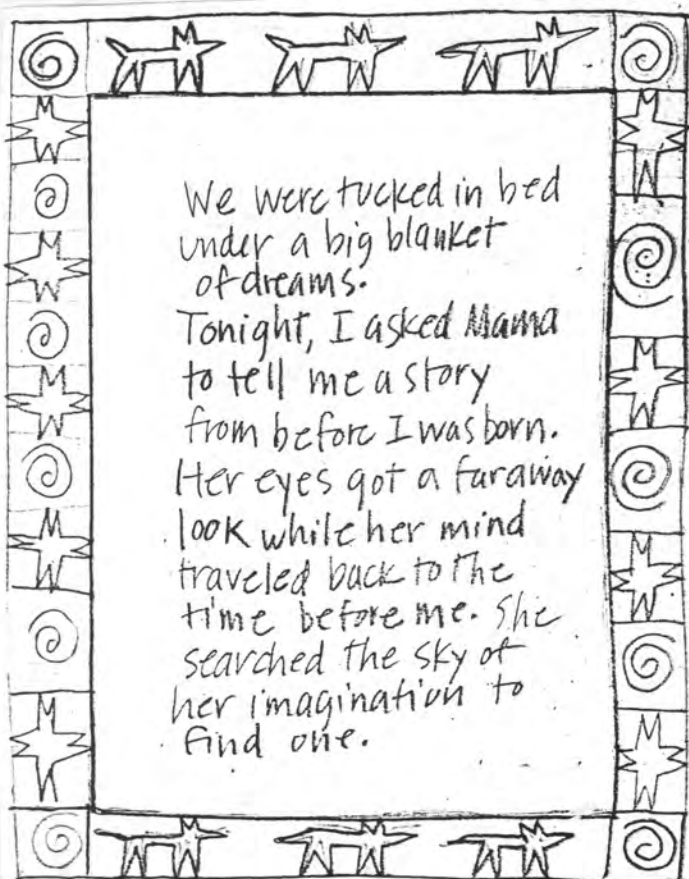 We were tucked in bed
under a big blanket
of dreams.
Tonight, I asked Mama
to tell me a story
from before I was born.
Her eyes got a faraway
look while her mind
traveled back to the
time before me. She
searched the sky of
her imagination to
find one.